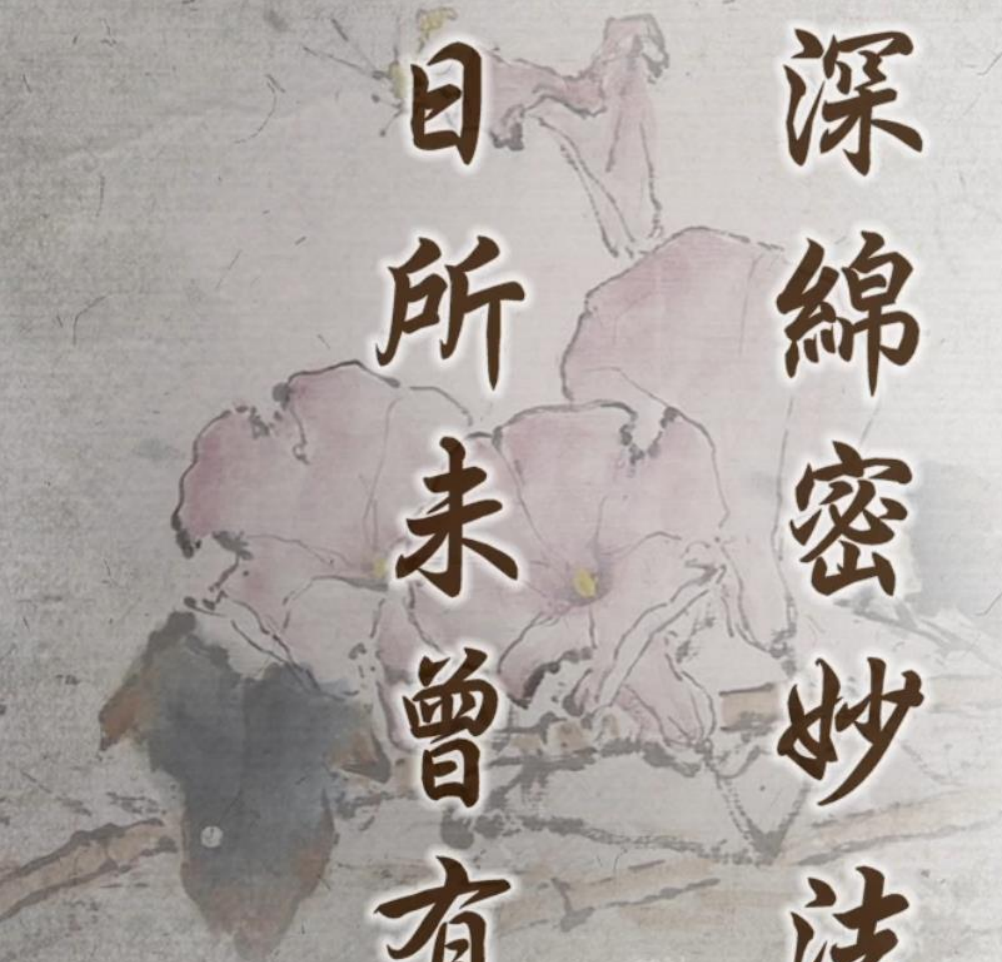 深綿密妙法
日所未曾有